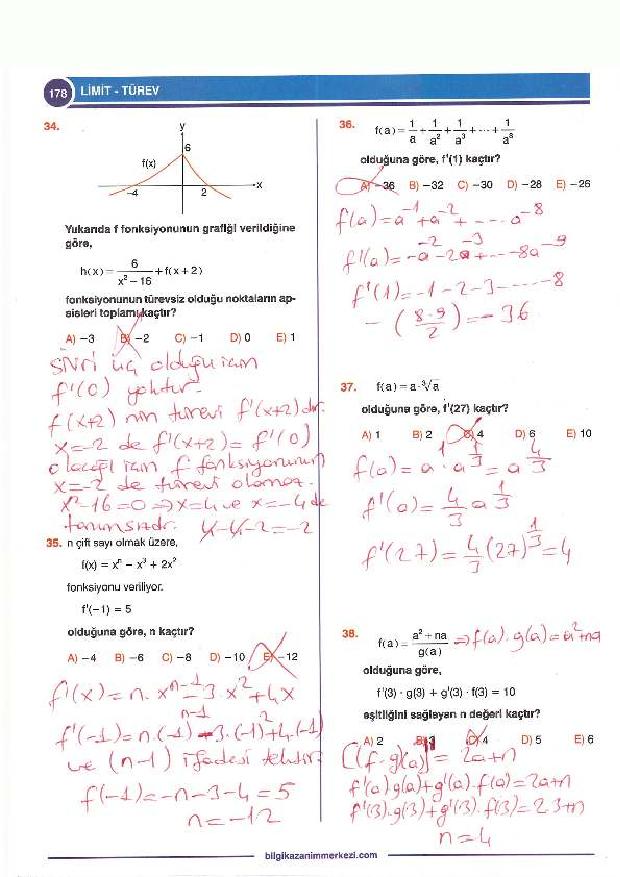 178 LİMİT - TÜREV
34.
y
6
f(x)
-4
2
x
Yukarıda f fonksiyonunun grafiği verildiğine
göre,
h(x) = 6 / (x² - 16) + f(x + 2)
fonksiyonunun türevsiz olduğu noktaların ap-
sisleri toplamı kaçtır?
A) -3 B) -2 C) -1 D) 0 E) 1
SiVri üç olduğu için
f'(0) yoktur.
f(x+2) nin türevi f'(x+2) dir.
x=-2 de f'(x+2) = f'(0)
olacağı için f fonksiyonunun
x=-2 de türevi olamaz.
x²-16=0 ⇒ x=4 ve x=-4 de
tanımsızdır. 4-4-2=-2
35. n çift sayı olmak üzere,
f(x) = xⁿ - x³ + 2x²
fonksiyonu veriliyor.
f'(-1) = 5
olduğuna göre, n kaçtır?
A) -4 B) -6 C) -8 D) -10 E) -12
f'(x) = n.xⁿ⁻¹-3.x²+4x
f'(-1) = n.(-1)ⁿ⁻¹-3.(-1)²+4.(-1)
ve (n-1) ifadesi tektir.
f(-1) = -n-3-4=5
n=-12
36. f(a) = 1/a + 1/a² + 1/a³ + ... + 1/a⁸
olduğuna göre, f'(1) kaçtır?
A) -36 B) -32 C) -30 D) -28 E) -26
f(a) = a⁻¹+a⁻²+ ---- a⁻⁸
f'(a) = -a⁻²-2a⁻³+ ---- 8a⁻⁹
f'(1) = -1-2-3- ---- -8
-(8.9/2) = -36
37. f(a) = a·³√a
olduğuna göre, f'(27) kaçtır?
A) 1 B) 2 C) 4 D) 6 E) 10
f(a) = a¹.a^(1/3) = a^(4/3)
f'(a) = 4/3 a^(1/3)
f'(27) = 4/3 (27)^(1/3) = 4
38. f(a) = (a² + na) / g(a) ⇒ f(a).g(a) = a²+na
olduğuna göre,
f'(3) · g(3) + g'(3) · f(3) = 10
eşitliğini sağlayan n değeri kaçtır?
A) 2 B) 3 C) 4 D) 5 E) 6
[(f.g(a)]' = 2a+n
f'(a).g(a)+g'(a).f(a) = 2a+n
f'(3).g(3)+g'(3).f(3) = 2.3+n
n=4
bilgikazanimmerkezi.com